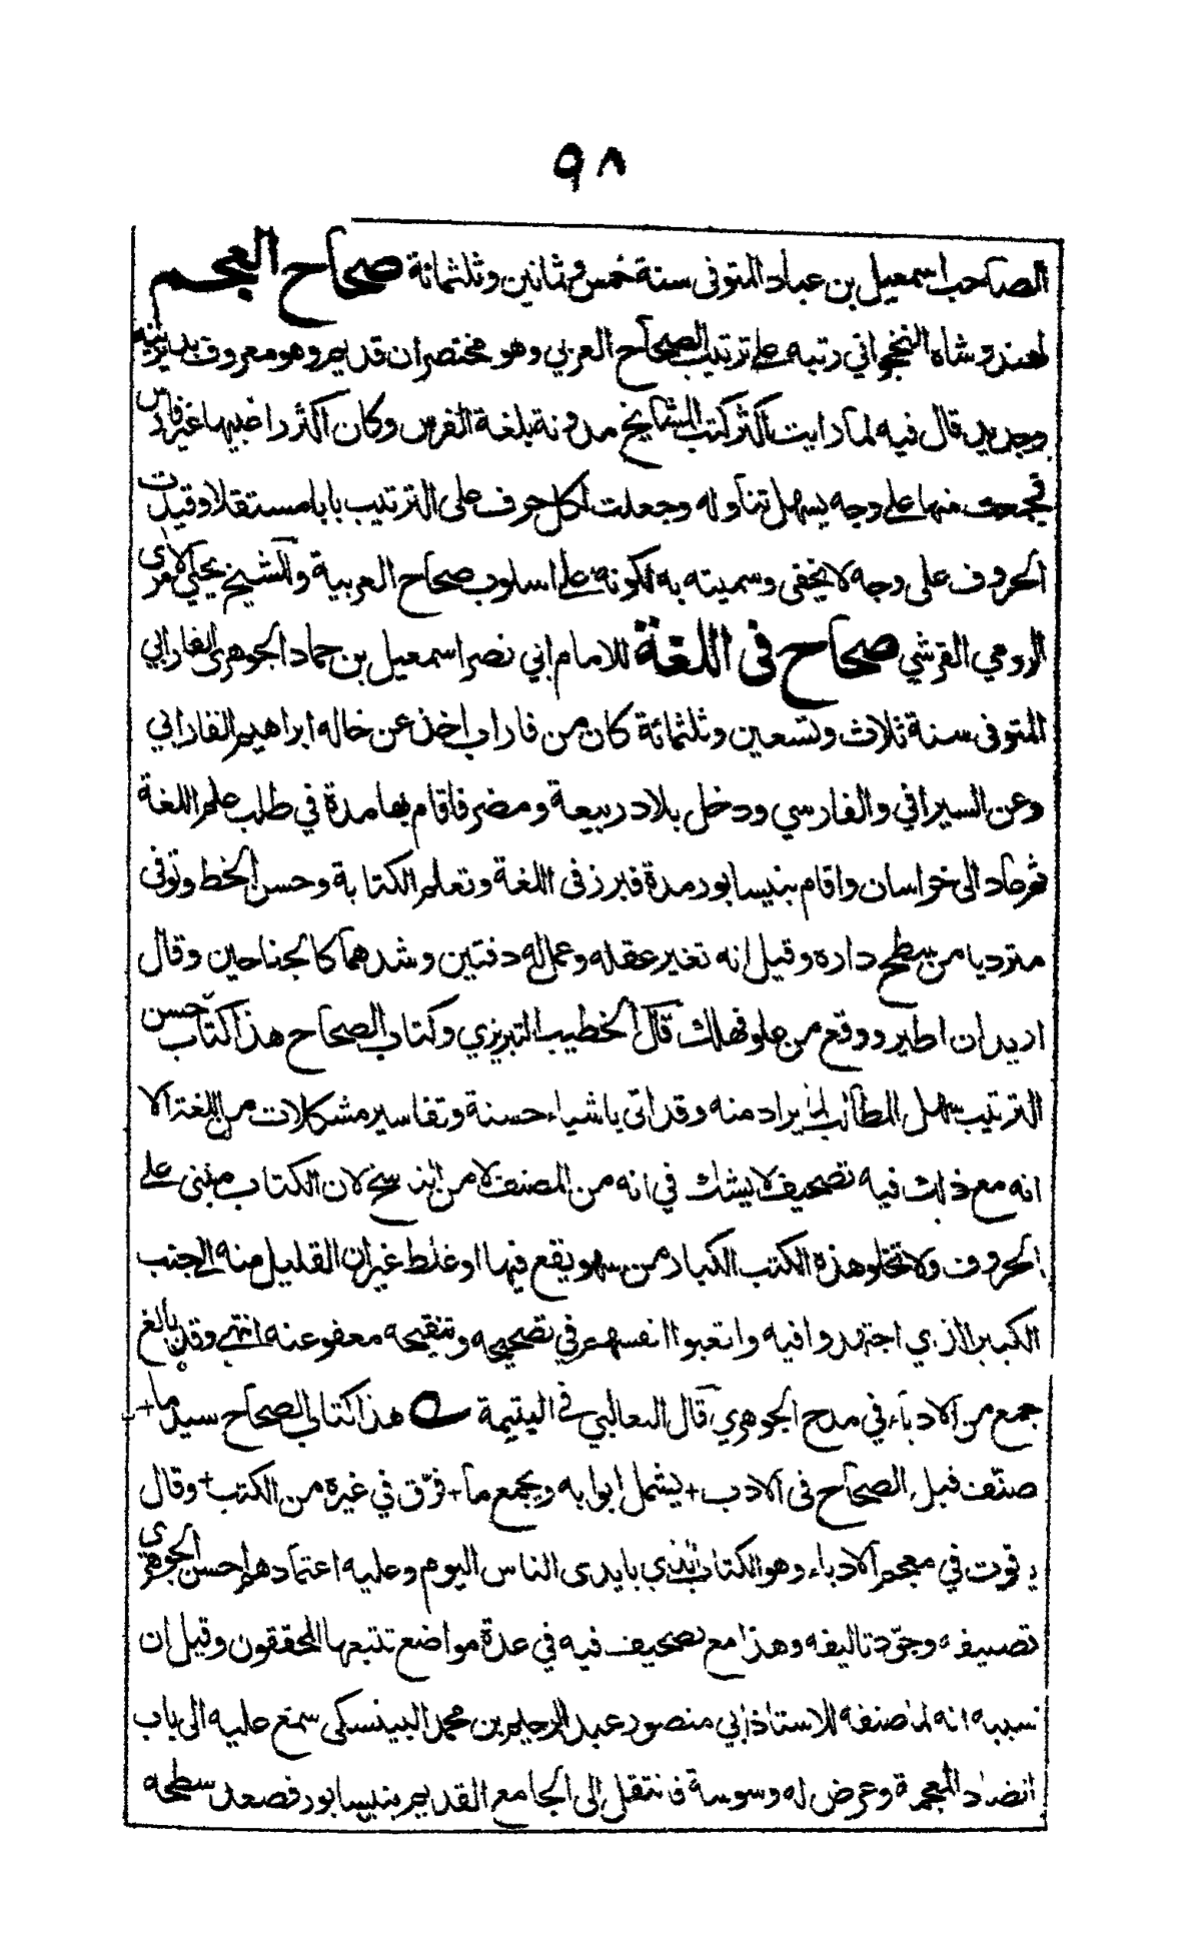 ٩٨
الصاحب اسمعيل بن عباد المتوفى سنة خمس وثمانين وثلثمائة صحاح العجم
لهندوشاه النخجواني رتبه على ترتيب الصحاح العربي وهو مختصران قديم وهو معروف
وجديد قال فيه لما رايت اكثر كتب المشايخ مدونة بلغة الفرس وكان اكثر راغبيها غير فارس
فجمعت منها على وجه يسهل تناوله وجعلت لكل حرف على الترتيب بابا مستقلا وقيدت
الحروف على وجه لا يخفى وسميته به لكونه على اسلوب صحاح العربية والشيخ يحيى
الرومي القرشي صحاح فى اللغة للامام ابي نصر اسمعيل بن حماد الجوهرى الفارابي
المتوفى سنة ثلاث وتسعين وثلثمائة كان من فاراب اخذ عن خاله ابراهيم الفارابي
وعن السيرافي والفارسي ودخل بلاد ربيعة ومضر فاقام بها مدة في طلب علم اللغة
ثم عاد الى خراسان واقام بنيسابور مدة فبرز فى اللغة وتعلم الكتابة وحسن الخط وتوفى
مترديا من سطح داره وقيل انه تغير عقله وعمل له دفتين وشدهما كالجناحين وقال
اريد ان اطير ووقع من علو فهلك قال الخطيب التبريزي وكتاب الصحاح هذا كتاب حسن
الترتيب سهل المطالب لما يراد منه وقد اتى باشياء حسنة وتفاسير مشكلات من اللغة الا
انه مع ذلك فيه تصحيف لا يشك في انه من المصنف لا من الناسخ لان الكتاب مبنى على
الحروف ولا تخلو هذه الكتب الكبار من سهو يقع فيها او غلط غير ان القليل منه الى جنب
الكبير الذي اجتهدوا فيه واتعبوا انفسهم في تصحيحه وتنقيحه معفو عنه انتهى وقد بالغ
جمع من الادباء في مدح الجوهري قال الثعالبي في اليتيمة هذا كتاب الصحاح سيد ما +
صنّف قبل الصحاح فى الادب + يشمل ابوابه ويجمع ما + فرّق في غيره من الكتب + وقال
ياقوت في معجم الادباء وهو الكتاب الذي بايدى الناس اليوم وعليه اعتمادهم احسن الجوهرى
تصنيفه وجوّد تاليفه وهذا مع تصحيف فيه في عدة مواضع تتبعها المحققون وقيل ان
سببه انه لما صنفه للاستاذ ابي منصور عبد الرحيم بن محمد البيشكى سمع عليه الى باب
الضاد المعجمة وعرض له وسوسة فانتقل الى الجامع القديم بنيسابور فصعد سطحه